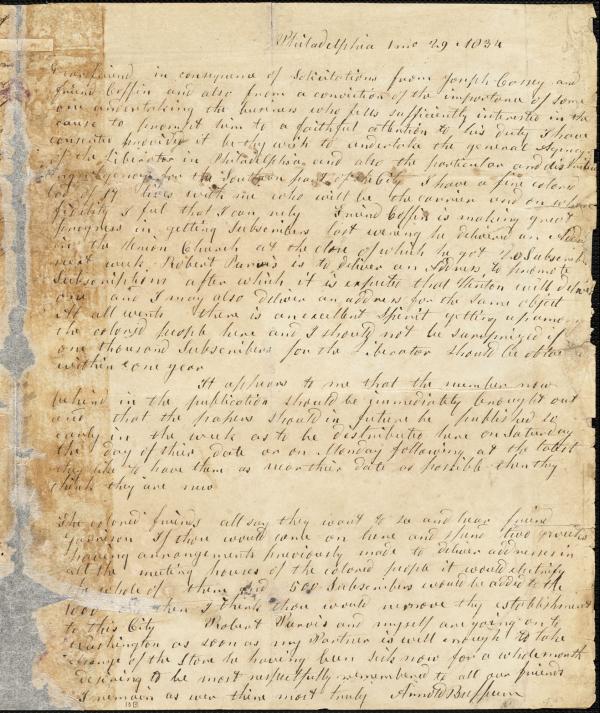 Philadelphia 1 mo 29. 1834
Dear friend, in consequence of Solicitations from Joseph Cassey and
friend Coffin and also from a conviction of the importance of some
one undertaking the business who feels sufficiently interested in the
cause to prompt him to a faithful attention to his duty I have
consented provided it be thy wish to undertake the general Agency
of the Liberator in Philadelphia and also the particular and distribu
ing Agency for the Southern part of the City I have a fine colored
lives with me who will be the carrier and on whose
fidelity I feel that I can rely Friend Coffin is making great
progress in getting Subscribers last evening he delivered an Address
in the Union Church at the close of which he got Subscribers
next week Robert Purvis is to deliver an Address to promote
Subscriptions after which it is expected that Hinton will deliver
one and I may also deliver an address for the same object
At all events there is an excellent Spirit getting up among
the colored people here and I should not be surprized if
one thousand Subscribers for the Liberator should be obtained
within one year
It appears to me that the number now
behind in the publication should be immediately brought out
and that the papers should in future be published so
early in the week as to be distributed here on Saturday
the day of their date or on Monday following at the latest
they like to have them as near their date as possible then they
think they are new
The colored friends all say they want to see and hear friend
Garrison If thou would come on here and spend two months
having arrangements previously made to deliver addresses in
all the meeting houses of the colored people it would electrify
the whole of them and 500 Subscribers would be added to the
1000 then I think thou would remove thy establishment
to this City Robert Purvis and myself are going on to
Washington as soon as my Partner is well enough to take
charge of the Store he having been sick now for a whole month
desiring to be most respectfully remembered to all our friends
I remain as ever thine most truly Arnold Buffum